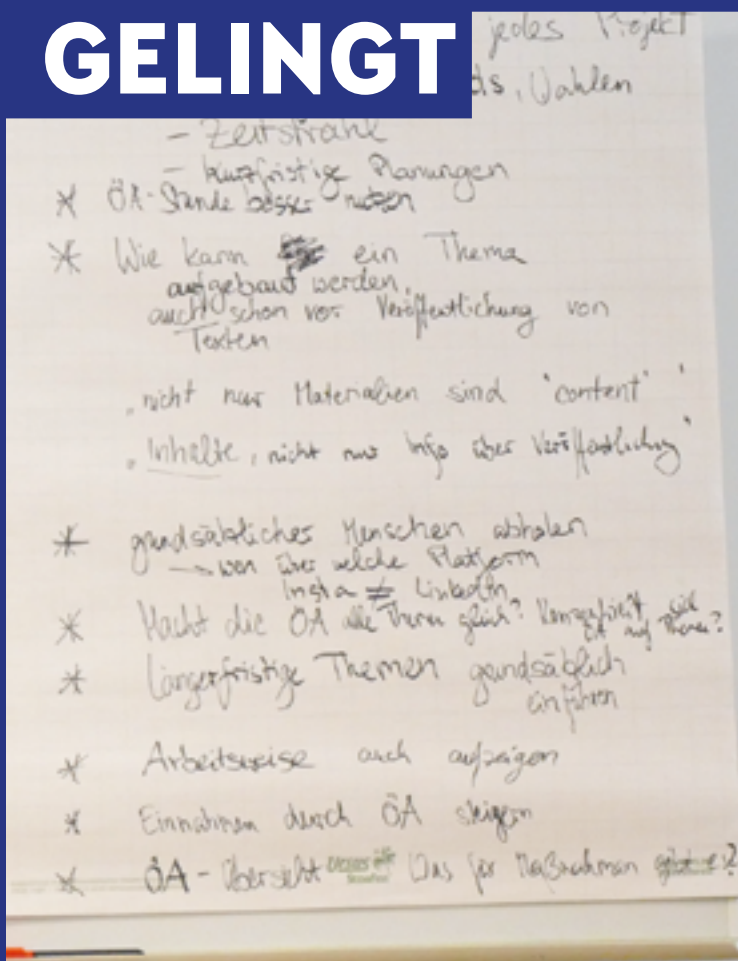 GELINGT
jedes Projekt
ds, Wahlen
- Zeitstrahl
- kurzfristige Planungen
* ÖA-Stände besser nutzen
* Wie kann ein Thema
aufgebaut werden,
auch schon vor Veröffentlichung von
Texten
"nicht nur Materialien sind 'content'"
"Inhalte, nicht nur Info über Veröffentlichung"
* grundsätzliches Menschen abholen
→ wen über welche Plattform
Insta ≠ LinkedIn
* Macht die ÖA alle Themen gleich? Konzentriert sich
ÖA auf Themen?
* Längerfristige Themen grundsätzlich
einführen
* Arbeitsweise auch aufzeigen
* Einnahmen durch ÖA steigern
* ÖA - Übersicht Was für Maßnahmen gibt es?